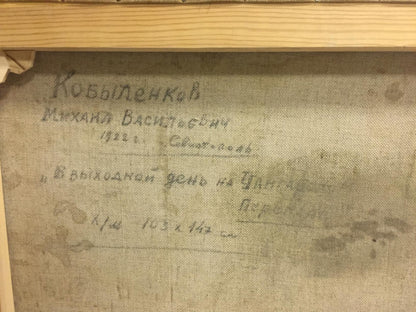 „Кобыленков
Михаил Васильевич
1922 г. Севастополь
„В выходной день на
х/м 103 x 147 см